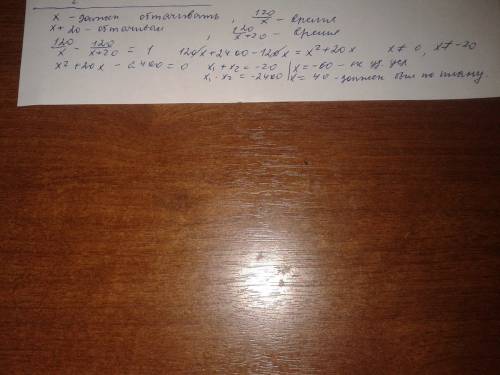 x - должен обтачивать , 120/x - время
x + 20 - обтачивал , 120/x+20 - время
120/x - 120/x+20 = 1 120x+2400-120x = x²+20x x≠0, x≠-20
x²+20x-2400=0 x₁+x₂=-20 | x=-60 - не уд. усл
x₁·x₂=-2400 | x=40 - должен был по плану.